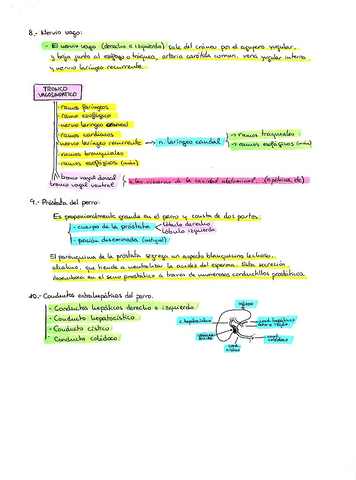 8.- Nervio vago:
- El nervio vago (derecho e izquierdo) sale del cráneo por el agujero yugular,
y baja junto al esófago o tráquea, arteria carótida común, vena yugular interna
y nervio laríngeo recurrente.
TRONCO
VAGOSIMPÁTICO
- ramos faríngeos
- ramo esofágico
- nervio laríngeo craneal
- ramos cardíacos
- nervio laríngeo recurrente → n. laríngeo caudal
→ ramos traqueales
→ ramos esofágicos
- ramos bronquiales
- ramos esofágicos
tronco vagal dorsal
tronco vagal ventral
a las vísceras de la cavidad abdominal.
9.- Próstata del perro:
Es proporcionalmente grande en el perro y consta de dos partes:
- cuerpo de la próstata
lóbulo derecho
lóbulo izquierdo
- porción diseminada
El parénquima de la próstata segrega un aspecto blanquecino lechoso,
alcalino, que tiende a neutralizar la acidez del esperma. Esta secreción
desemboca en el seno prostático a través de numerosos conductillos prostáticos.
10.- Conductos extrahepáticos del perro.
- Conductos hepáticos derecho e izquierdo.
- Conducto hepatocístico.
- Conducto cístico
- Conducto colédoco
hígado
c. hepatocístico
cond. hepáticos
cond.
cístico
cond.
colédoco